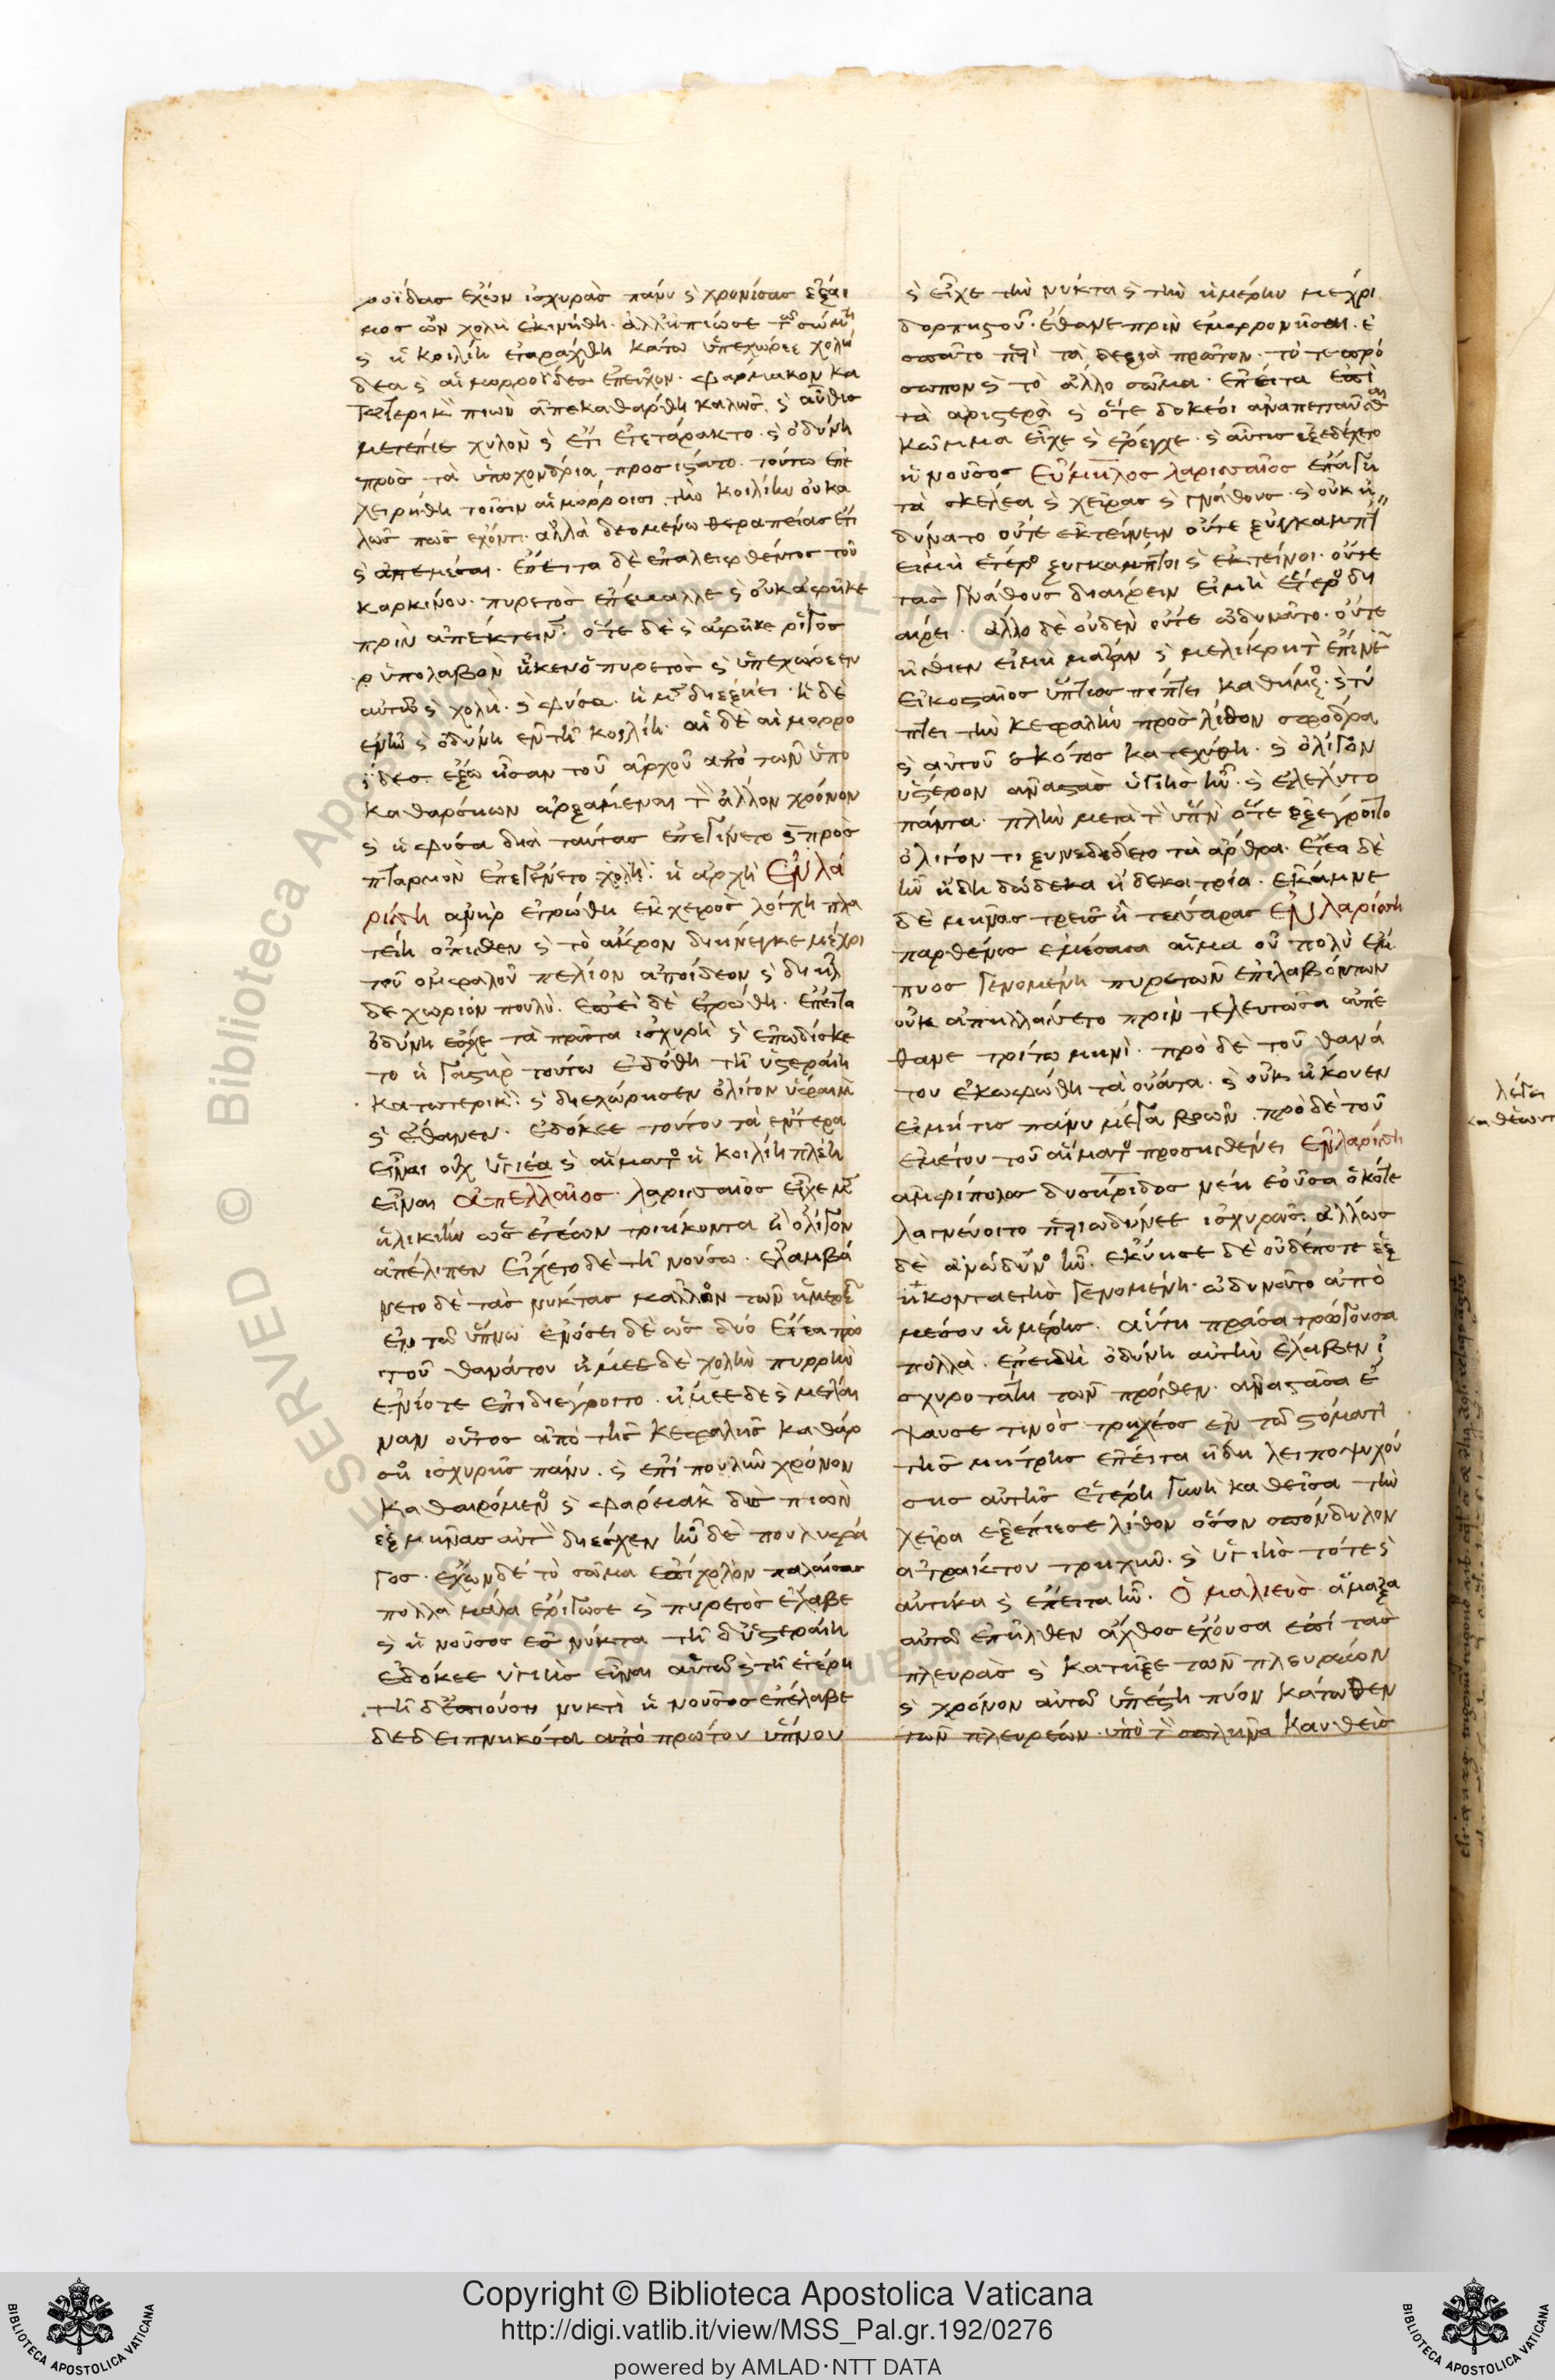 ροΐδας ἔχων ἰσχυρὰς πάνυ ϛ χρονίσας ἔξαι
μος ὢν χολὴ ἐκινήθη. ἀλλ' ἠπίωσε τῶ σώμτι
ϛ ἡ κοιλίη ἐταράχθη κάτω ὑπεχώρεε χολώ
δεα ϛ αἱμορροΐδες ἐπεῖχον. φάρμακον κα
τωτερικὸν πιὼν ἀπεκαθάρθη καλῶς. ϛ αὖθις
μετέπιε χυλὸν ϛ ἔτι ἐτετάρακτο. ϛ ὀδύνη
πρὸς τὰ ὑποχονδρια προσίζατο. τούτω ἐπε
χειρήθη τοῖσιν αἱμόρροισι τὴν κοιλίην οὐ κα
λῶς πως ἔχοντι. ἀλλὰ δεομένω θεραπείας ἔτι
ϛ ἀπεμέσαι. ἔπειτα δὲ ἐπαλειφθέντος τοῦ
καρκίνου. πυρετὸς ἐπέβαλλε ϛ οὐκ ἀφῆκε
πρὶν ἀπέκτεινεν. ὅτε δὲ ϛ ἀφῆκε ῥῖγος
ὑπολαβὸν ἧκεν ὁ πυρετὸς ϛ ὑπεχώρεεν
αὐτῶ ϛ χολὴ. ϛ φύσα. ἡ μὲν διεξήει. ἡ δὲ
ἐνῆν ϛ ὀδύνη ἐν τῆ κοιλίη. αἱ δὲ αἱμορρο
ΐδες ἔξω ἦσαν τοῦ ἀρχοῦ ἀπὸ τῶν ὑπο
καθαρσίων ἀρξάμεναι τὸν ἄλλον χρόνον
ϛ ἡ φύσα διὰ ταύτας ἐπεγίνετο ϛ πρὸς
πταρμὸν ἐπεγένετο χολή. ἡ ἀρχή Ἐν λα
ρίσση ἀνὴρ ἐτρώθη ἐκ χειρὸς λόγχη πλα
τείη ὄπισθεν ϛ τὸ ἄκρον διήνεγκε μέχρι
τοῦ ὀμφαλοῦ πελίον ἀποίδεον ϛ διῆλ
δε χωρίον πουλύ. ἐπεὶ δὲ ἐτρώθη. ἔπειτα
ὀδύνη ἔσχε τὰ πρῶτα ἰσχυρὴ ϛ ἐπωδίσκε
το ἡ γαστὴρ τούτω ἐδόθη τῆ ὑστεραίη
κατωτερικὸν. ϛ διεχώρησεν ὀλίγον ὕφαιμον
ϛ ἔθανεν. ἐδόκεε τούτου τὰ ἔντερα
εἶναι οὐχ ὑγιέα ϛ αἵματος ἡ κοιλίη πλέη
εἶναι Ἀπελλαῖος λαρισσαῖος εἶχε μὲν
ἡλικίην ὡς ἐτέων τριήκοντα ἢ ὀλίγον
ἀπέλιπεν Εἴχετο δὲ τῆ νούσω. ἐλαμβά
νετο δὲ τὰς νύκτας μᾶλλον τῶν ἡμερέων
ἐν τῶ ὕπνω ἐνόσει δὲ ὡς δύο ἔτεα πρὸ
τοῦ θανάτου ἤμεε δὲ χολὴν πυρρὴν
ἐνίοτε ἐπιδιεγροιτο. ἤμεε δὲ ϛ μέλαι
ναν οὗτος ἀπὸ τῆς κεφαλῆς καθάρ
σιος ἰσχυρῆς πάνυ. ϛ ἐπὶ πουλὺν χρόνον
καθαιρόμενος ϛ φάρμακον δὶς πιὼν
ἓξ μῆνας αὐτὸν διέσχεν ἦν δὲ πουλυφά
γος. ἔχων δὲ τὸ σῶμα ἐπίχολον παλαίσας
πολλὰ μάλα ἐρίγωσε ϛ πυρετὸς ἔλαβε
ϛ ἡ νοῦσος ἐς νύκτα τῆ δ' ὑστεραίη
ἐδόκεε ὑγιὴς εἶναι αὐτῶ ϛ τῆ ἑτέρη
τῆ δ' ἐπιούση νυκτὶ ἡ νοῦσος ἐπέλαβε
δεδειπνηκότα ἀπὸ πρώτου ὕπνου
ϛ εἶχε τὴν νύκτα ϛ τὴν ἡμέρην μέχρι
δορπηστοῦ. ἔθανε πρὶν ἐμφρονῆσαι. ἐ
σπᾶτο περὶ τὰ δεξιὰ πρῶτον. τό τε πρό
σωπον ϛ τὸ ἄλλο σῶμα. ἔπειτα ἐπὶ
τὰ ἀριστερὰ ϛ ὅτε δοκέοι ἀναπεπαῦσθαι
κῶμμα εἶχε ϛ ἔρεγχε. ϛ αὖτις ἐξεδέχετο
ἡ νοῦσος Εὔμηλος λαρισσαῖος ἐπάγη
τὰ σκέλεα ϛ χεῖρας ϛ γνάθους. ϛ οὐκ ἠ
δύνατο οὔτε ἐκτείνειν οὔτε ξυγκάμπτειν
εἰ μὴ ἕτερος ξυγκάμπτοι ϛ ἐκτείνοι. οὔτε
τὰς γνάθους διαίρειν εἰ μὴ ἕτερος δι
αίρει. ἄλλο δὲ οὐδὲν οὔτε ὠδυνᾶτο. οὔτε
ἤσθιεν εἰ μὴ μᾶζαν ϛ μελίκρητον ἔπινεν
εἰκοσταῖος ὕπτιος πίπτει καθήμενος. ϛ τύ
πτει τὴν κεφαλὴν πρὸς λίθον σφόδρα
ϛ αὐτοῦ σκότος κατεχύθη. ϛ ὀλίγον
ὕστερον ἀναστὰς ὑγιὴς ἦν. ϛ ἐλέλυτο
πάντα. πλὴν μετὰ τὸν ὕπνον ὅτε ἐξέγροιτο
ὀλίγον τι ξυνεδέδετο τὰ ἄρθρα. ἔτεα δὲ
ἦν ἤδη δώδεκα ἢ δεκατρία. ἔκαμνε
δὲ μῆνας τρεῖς ἢ τέσσαρας Ἐν λαρίσση
παρθένος ἐμέσασα αἷμα οὐ πολὺ ἔμ
πυος γενομένη πυρετῶν ἐπιλαβόντων
οὐκ ἀπηλλάσσετο πρὶν τελευτῶσα ἀπέ
θανε τρίτω μηνὶ. πρὸ δὲ τοῦ θανά
του ἐκωφώθη τὰ οὔατα. ϛ οὐκ ἤκουεν
εἰ μή τις πάνυ μέγα βοῶν. πρὸ δὲ τοῦ
ἐμέτου τοῦ αἵματος προσησθένει Ἐν λαρίσση
ἀμφίπολος δυσήριδος νέη ἐοῦσα ὁκότε
λαγνεύοιτο περιωδύνεε ἰσχυρῶς. ἄλλως
δὲ ἀνώδυνος ἦν. ἐκύησε δὲ οὐδέποτε ἑξ
ηκονταετὴς γενομένη. ὠδυνᾶτο ἀπὸ
μέσου ἡμέρης. αὕτη πράσα τρώγουσα
πολλὰ. ἐπειδὴ ὀδύνη αὐτὴν ἔλαβεν ἰ
σχυροτάτη τῶν πρόσθεν. ἀναστᾶσα ἔ
ψαυσε τινὸς τρηχέος ἐν τῶ στόματι
τῆς μήτρης ἔπειτα ἤδη λειποψυχού
σης αὐτῆς ἑτέρη γυνὴ καθεῖσα τὴν
χεῖρα ἐξεπίεσε λίθον ὅσον σπόνδυλον
ἀτράκτου τρηχὺν. ϛ ὑγιὴς τότε ϛ
αὐτίκα ϛ ἔπειτα ἦν. Ὁ μαλιεὺς ἅμαξα
αὐτῶ ἐπῆλθεν ἄχθος ἔχουσα ἐπὶ τὰς
πλευρὰς ϛ κατῆξε τῶν πλευρέων
ϛ χρόνον αὐτῶ ὑπέστη πῦον κάτωθεν
τῶν πλευρέων. ὑπὸ τὸν σπλῆνα καυθεὶς
Copyright © Biblioteca Apostolica Vaticana
http://digi.vatlib.it/view/MSS_Pal.gr.192/0276
powered by AMLAD·NTT DATA